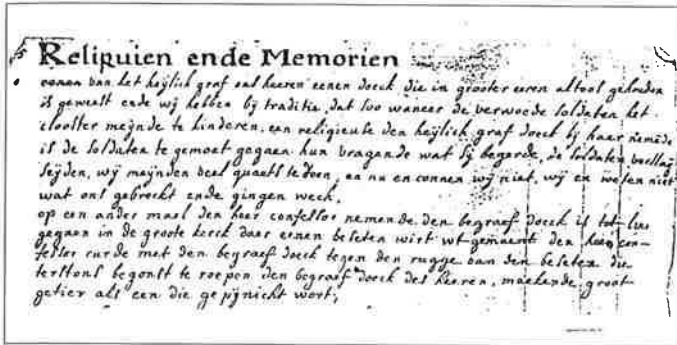 Reliquien ende Memorien
eenen van het heijlich graf ons heeren eenen doeck die in grooter eeren altoos gehouden
is geweest ende wij hebben bij traditie, dat soo waneer de verwoede soldaten het
clooster meijnde te hinderen, een religieuse den heijlich graf doeck bij haer nemende
is de soldaten te gemoet gegaen hun vragende wat sij begerde, de soldaten
seijden, wij meijnden veel quaets te doen, en nu en connen wij niet, wij en weten niet
wat ons gebreckt ende gingen wech,
op een ander mael den heer confessor nemende den begraef doeck is tot
gegaen in de groote kerck daer eenen beseten wirt wt gemaent den heer con-
fessor rurde met den begraef doeck tegen den rugge van den beseten die
terstont begonst te roepen den begraef doeck des heeren, maekende groot
getier als een die gepijnicht wort,